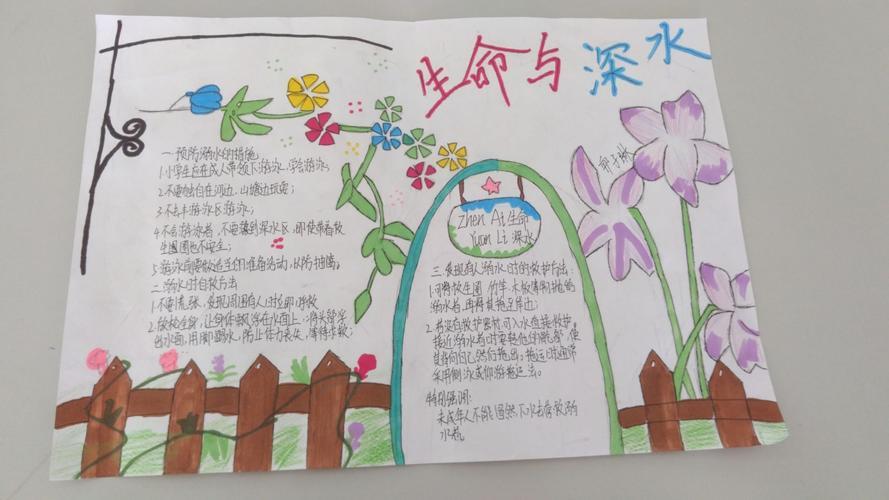 生命与深水
一.预防溺水的措施
1.小学生应在成人带领下游泳,学会游泳;
2.不要独自在河边、山塘边玩耍;
3.不去非游泳区游泳;
4.不会游泳者,不要游到深水区,即使带着救
生圈也不安全;
5.游泳前要做适当的准备活动,以防抽筋。
二.溺水时自救方法
1.不要慌张,发现周围有人时立即呼救
2.放松全身,让身体飘浮在水面上,将头部浮
出水面,用脚踢水,防止体力丧失,等待求救;
Zhen Ai 生命
Yuan Li 深水
三.发现有人溺水时的救护方法:
1.可将救生圈、竹竿、木板等抛给
溺水者,再将其拖至岸边;
采用侧泳或仰游拖运法。
特别强调:
未成年人不能贸然下水去营救溺
水者。